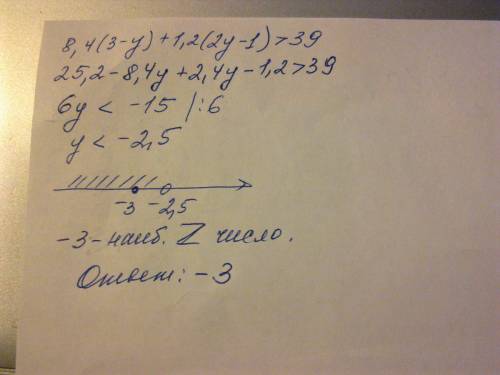 8,4(3-y)+1,2(2y-1)>39
25,2-8,4y+2,4y-1,2>39
6y < -15 |:6
y < -2,5
-3 -2,5
-3-наиб. Z число.
Ответ: -3